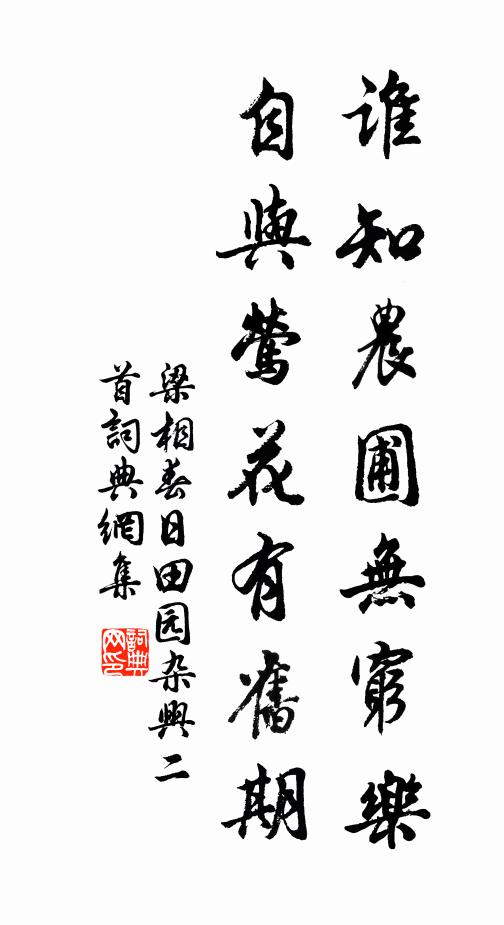 誰知農圃無窮樂
自與鶯花有舊期
梁相春日田园杂興二
首詞典網集
詞典网印